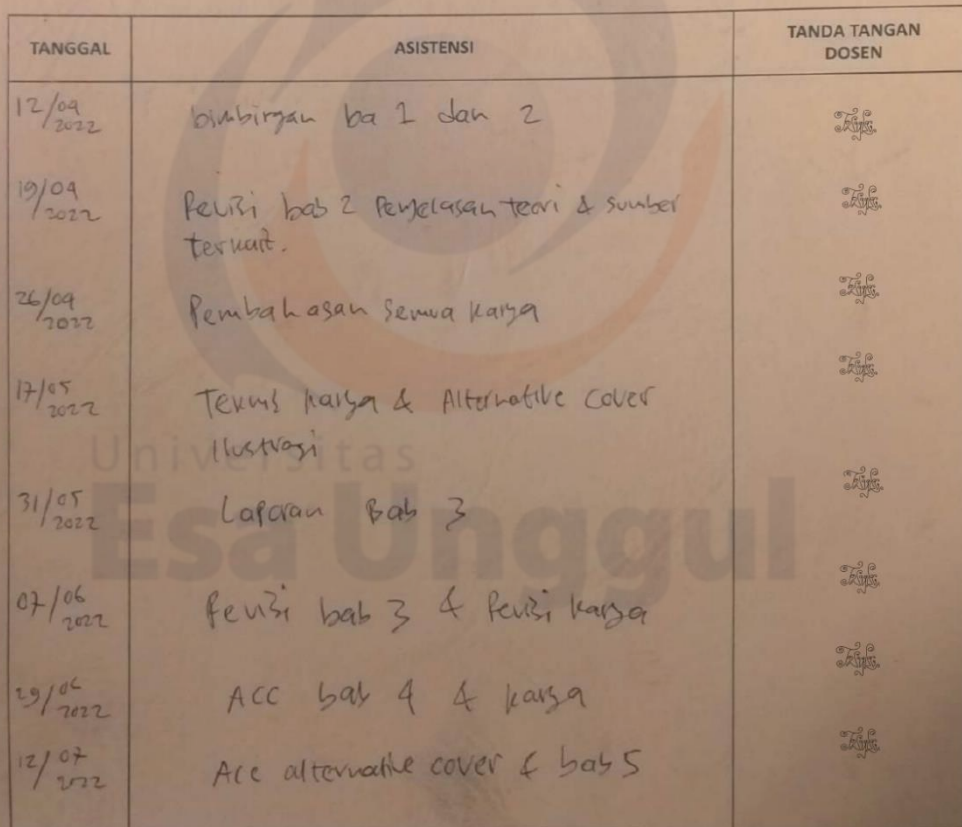 TANGGAL ASISTENSI TANDA TANGAN
DOSEN
12/04
2022 bimbingan ba 1 dan 2
19/04
2022 Revisi bab 2 Penjelasan teori & sumber
terkait.
26/04
2022 Pembahasan Semua karya
17/05
2022 Teknis karya & Alternative cover
Ilustrasi
Universitas
31/05
2022 Laporan Bab 3
Esa Unggul
07/06
2022 Revisi bab 3 & Revisi karya
29/06
2022 ACC bab 4 & karya
12/07
2022 Acc alternative cover & bab 5